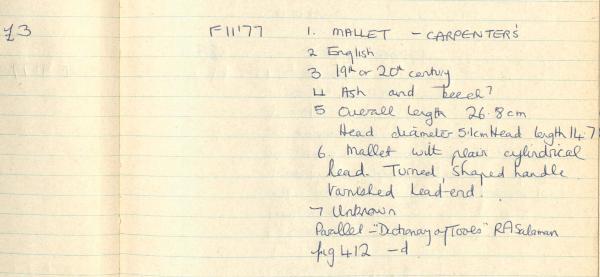 £3 F11'77 1. MALLET - CARPENTER'S
2 English
3 19th or 20th century
4 Ash and beech?
5 Overall length 26.8cm
Head diameter 5.1cm Head length 14.7
6. Mallet with plain cylindrical
head. Turned, shaped handle
Varnished head-end.
7 Unknown
Parallel - "Dictionary of Tools" RA Salaman
fig 412 - d.